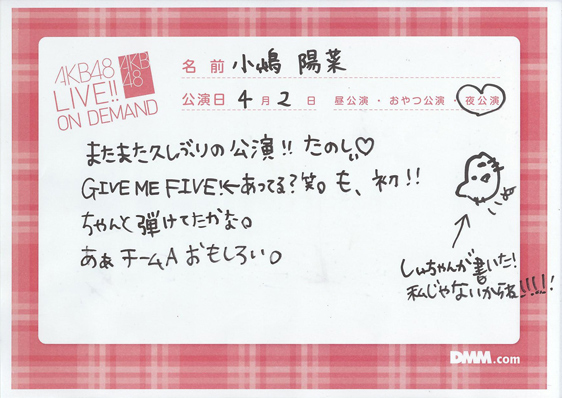 AKB48
LIVE!!
ON DEMAND
AKB
48
名前 小嶋 陽菜
公演日 4月2日 昼公演・おやつ公演・夜公演
またまた久しぶりの公演!! たのしい♡
GIVE ME FIVE!←あってる?笑。も、初!!
ちゃんと弾けてたかな。
あぁ チームA おもしろい。
しぃちゃんが書いた!
私じゃないからね!!!!!
DMM.com